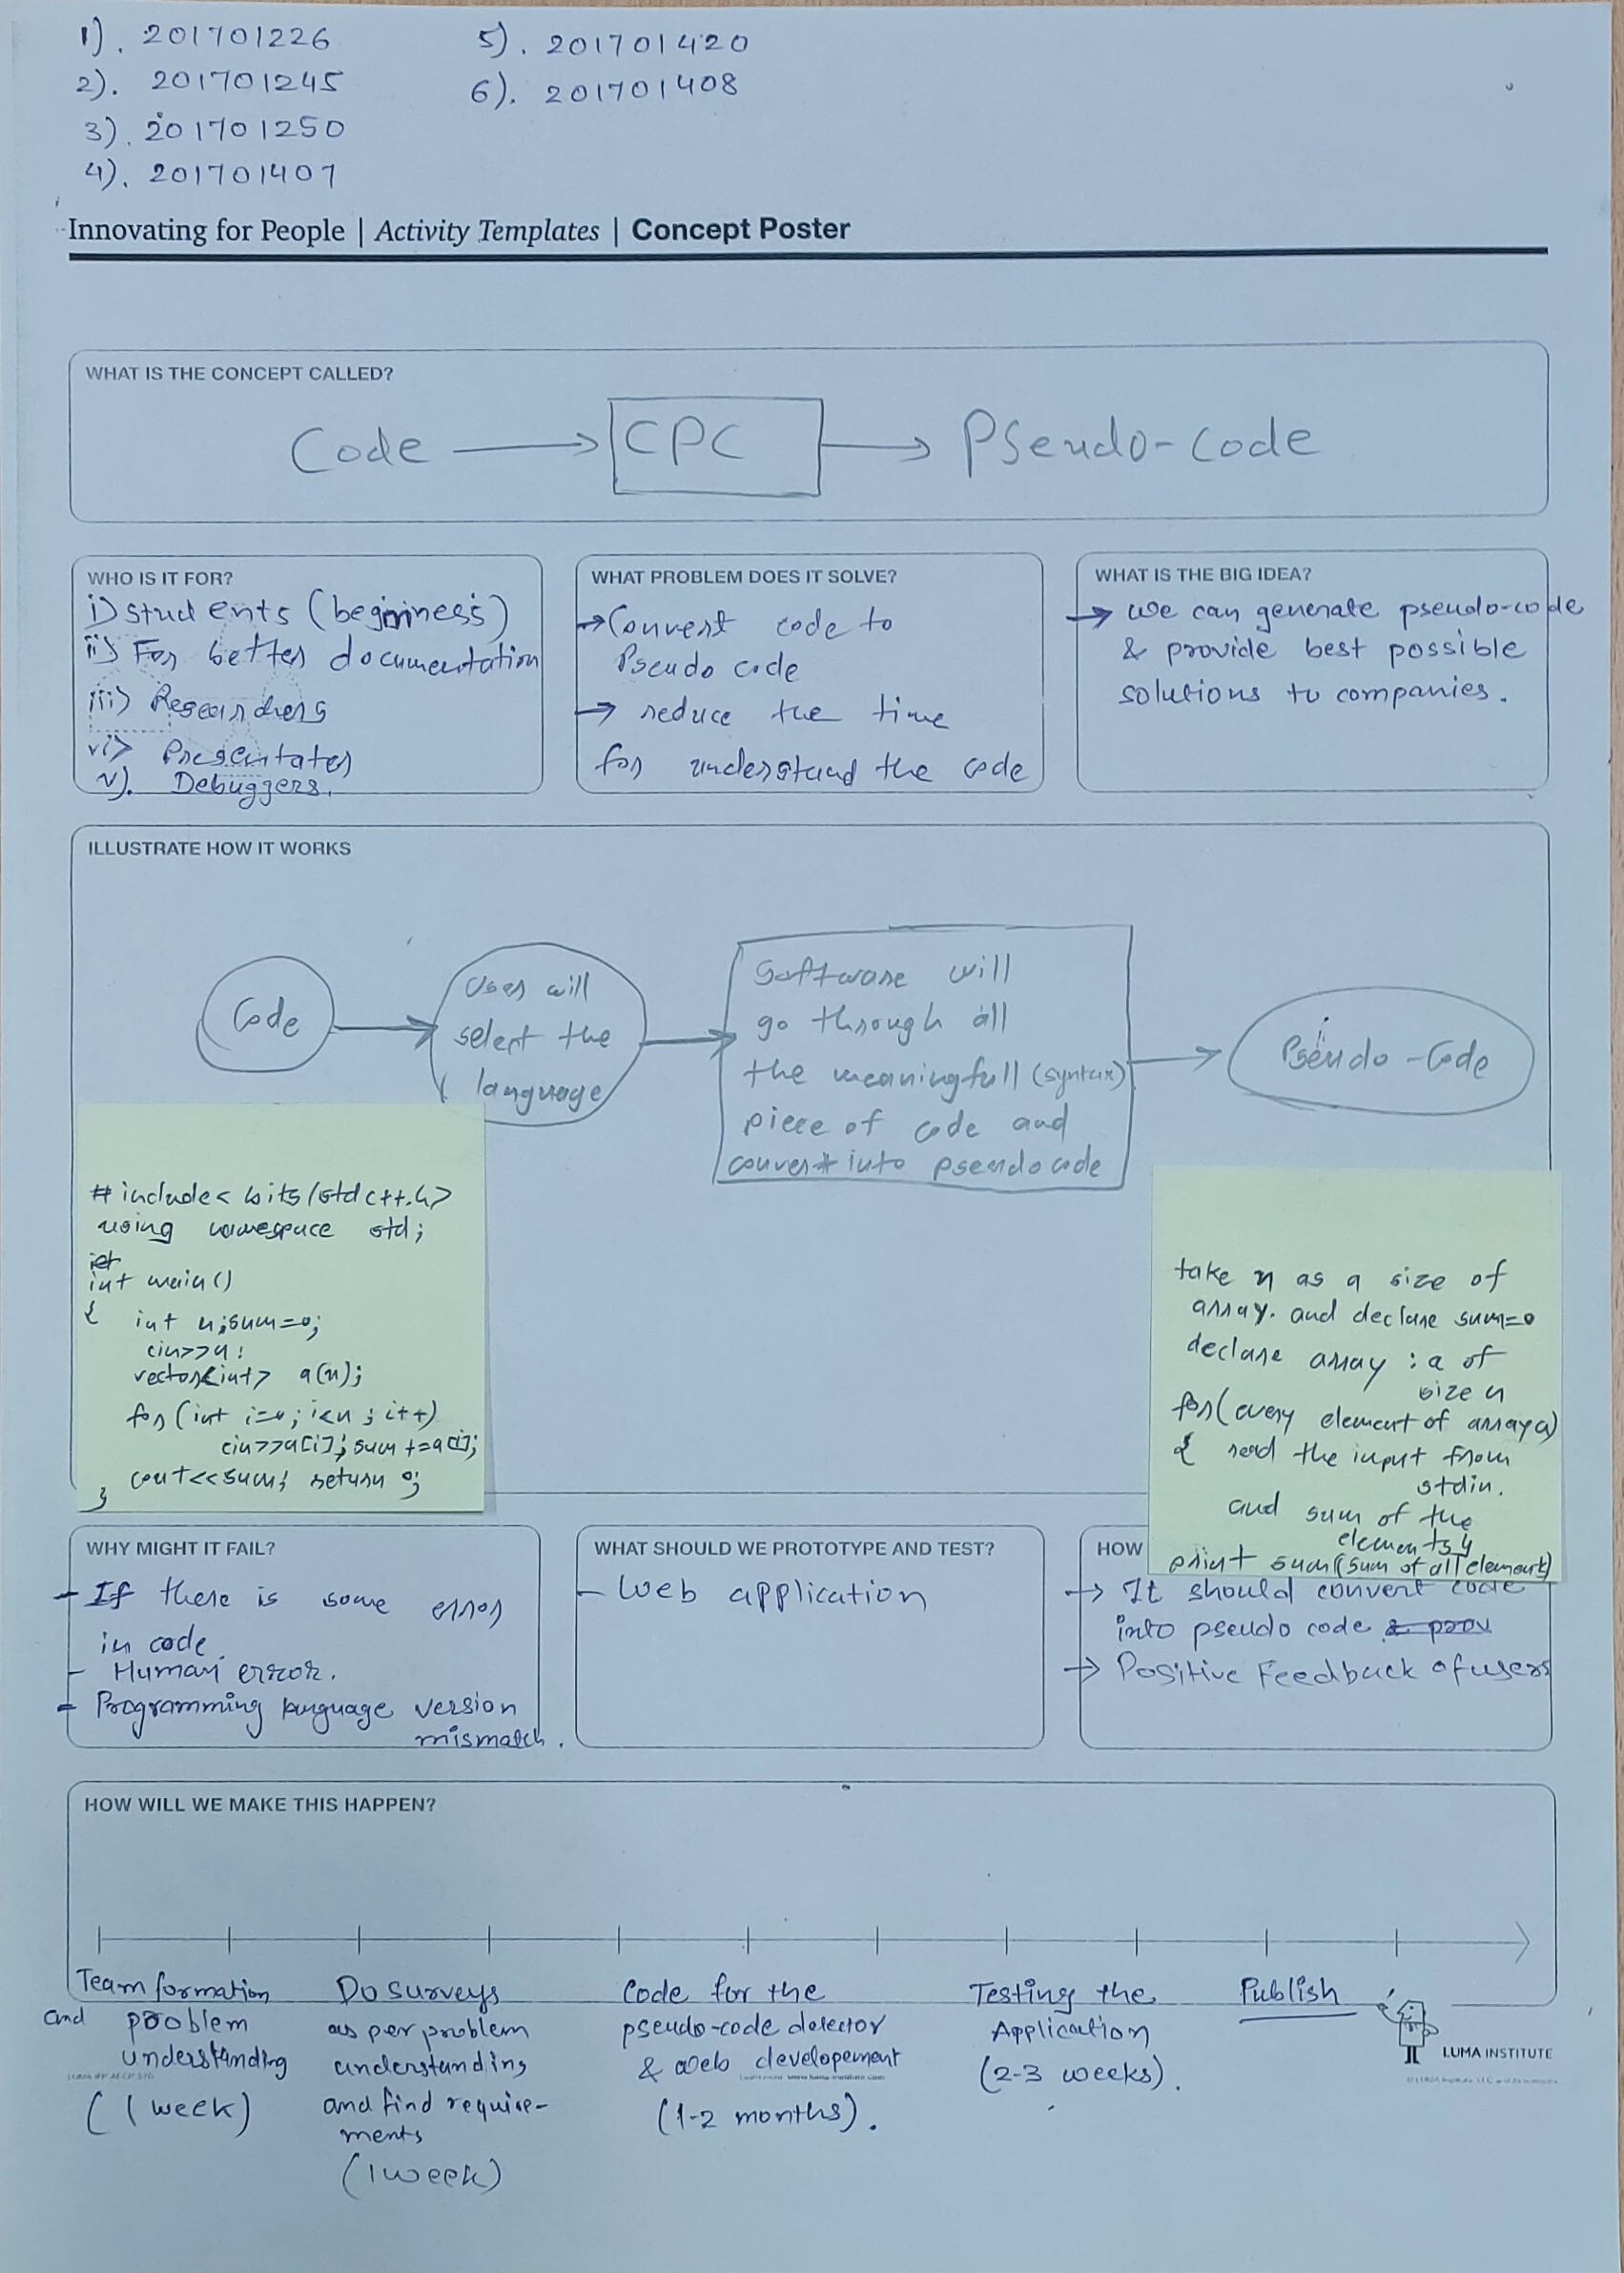 1). 201701226
2). 201701245
3). 201701250
4). 201701407
5). 201701420
6). 201701408
Innovating for People | Activity Templates | Concept Poster
WHAT IS THE CONCEPT CALLED?
Code → CPC → Pseudo-code
WHO IS IT FOR?
i) students (beginners)
ii) For better documentation
iii) Researchers
vi) Presentater
v). Debuggers.
WHAT PROBLEM DOES IT SOLVE?
→ Convert code to
Pseudo code
→ reduce the time
for understand the code
WHAT IS THE BIG IDEA?
→ we can generate pseudo-code
& provide best possible
solutions to companies.
ILLUSTRATE HOW IT WORKS
Code
User will
select the
language
Software will
go through all
the meaningfull (syntax)
piece of code and
convert into pseudocode
Pseudo-Code
#include<bits/stdc++.h>
using namespace std;
int main()
{ int n; sum=0;
cin>>n;
vector<int> a(n);
for(int i=0; i<n; i++)
cin>>a[i]; sum+=a[i];
cout<<sum; return 0;
}
take n as a size of
array. and declare sum=0
declare array : a of
size n
for(every element of array a)
{ read the input from
stdin.
and sum of the
elements }
print sum (sum of all element)
WHY MIGHT IT FAIL?
- If there is some error
in code.
- Human error.
- Programming language version
mismatch.
WHAT SHOULD WE PROTOTYPE AND TEST?
- Web application
HOW
→ It should convert code
into pseudo code
→ Positive Feedback of users
HOW WILL WE MAKE THIS HAPPEN?
Team formation
and problem
understanding
(1 week)
Do surveys
as per problem
understanding
and find require-
ments
(1 week)
Code for the
pseudo-code detector
& web developement
(1-2 months).
Testing the
Application
(2-3 weeks).
Publish
LUMA INSTITUTE